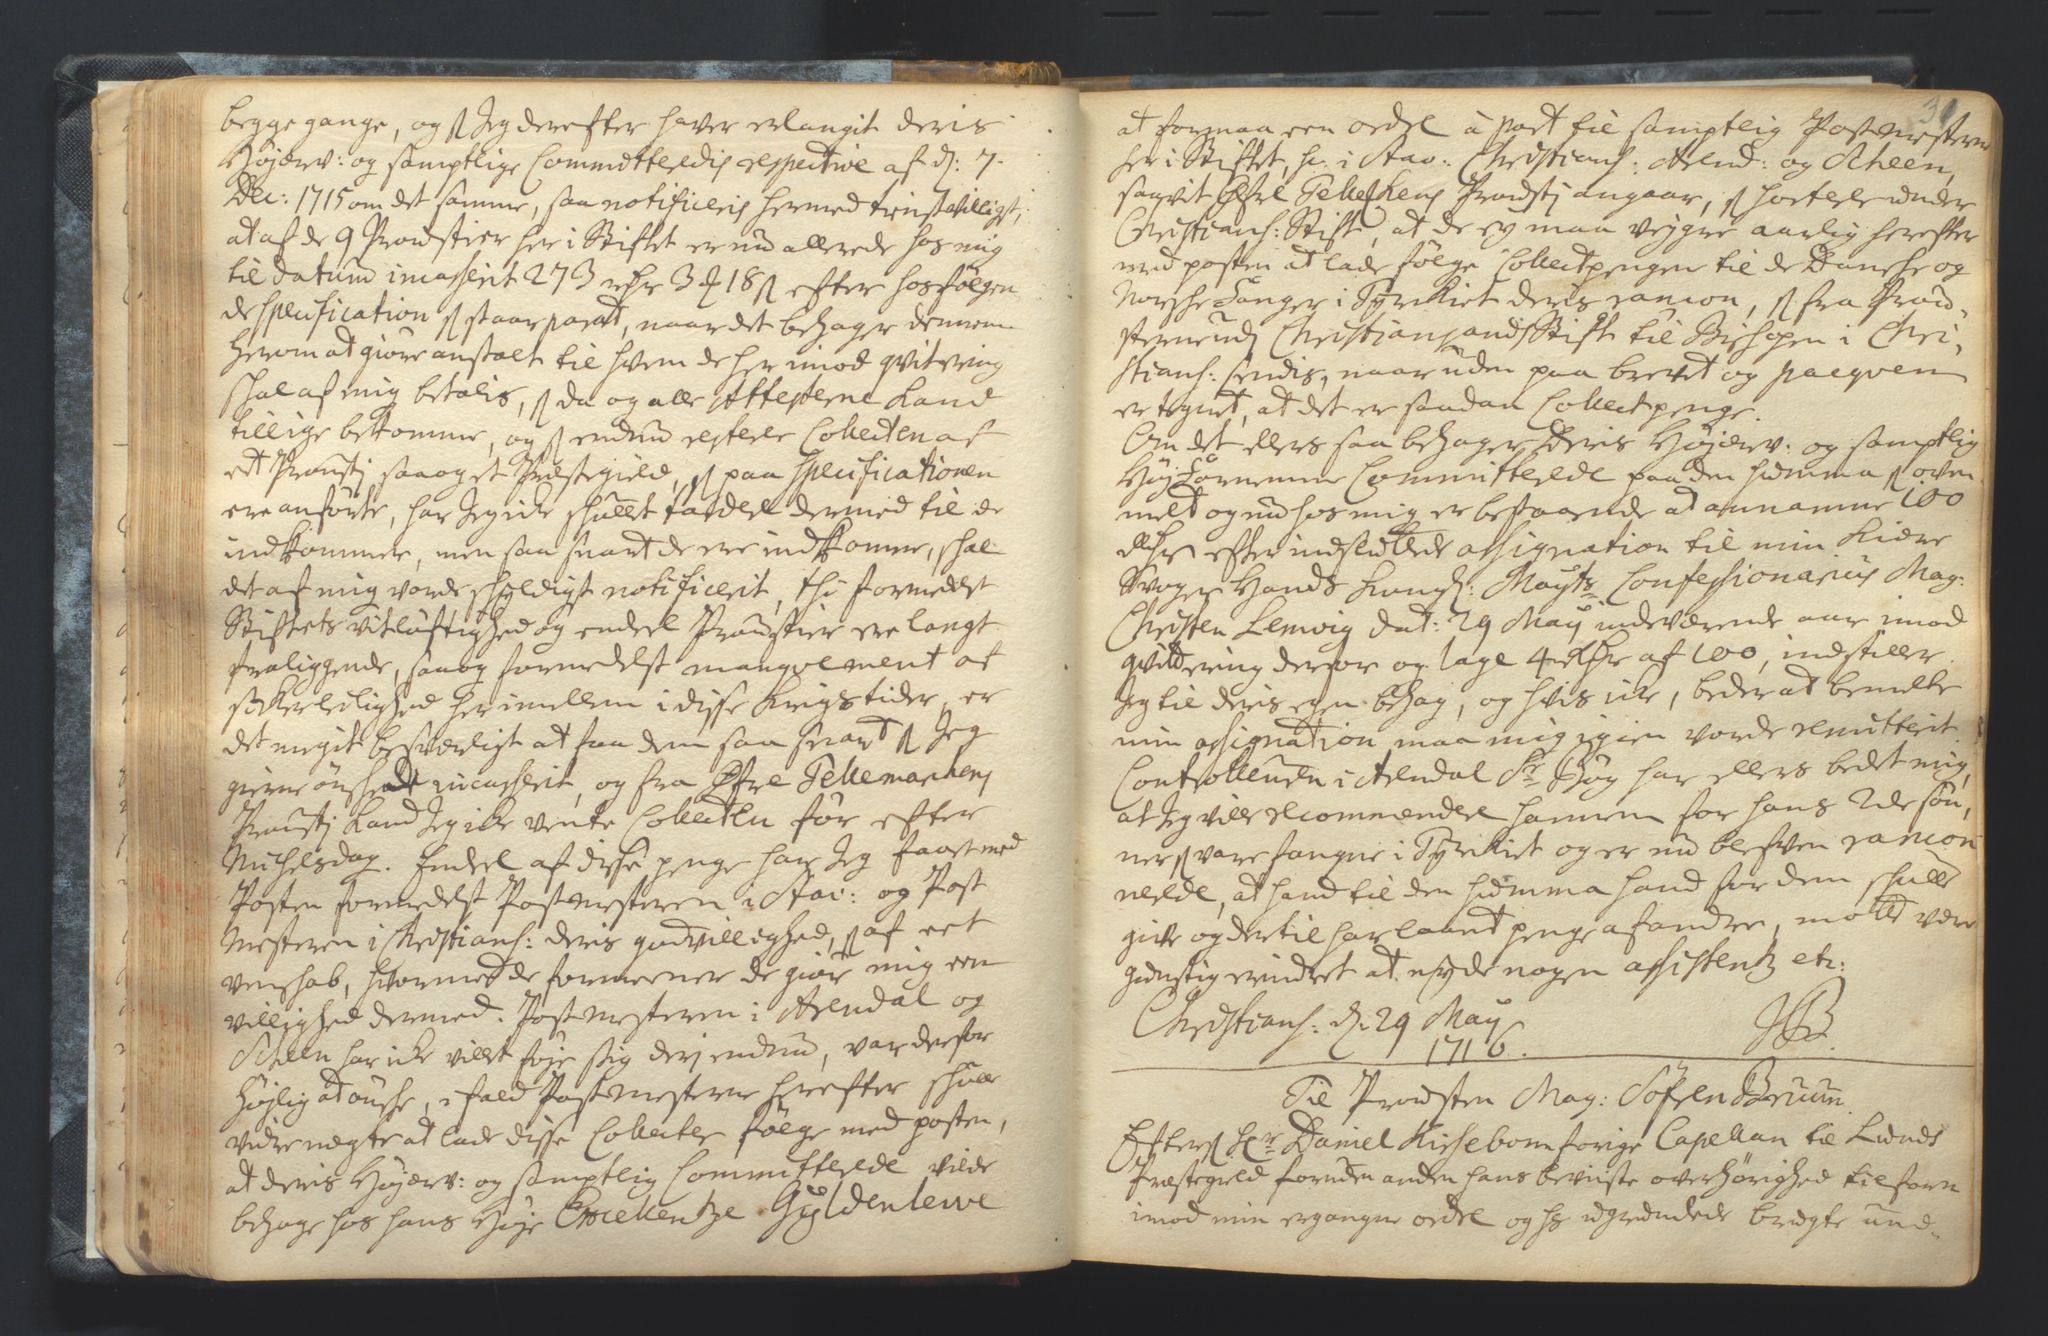 begge gange, og s. Jeg derefter haver erlangit deris
Højærv: og samptlige Committeredis respective af d: 7.
Dec: 1715 om det samme, saa notificeris hermed tienstvilligst,
at af de 9 Provstier her i Stiftet er nu allerede hos mig
til datum incasserit 273 rdr 3 18 s efter hosfølgen
de specification s staar parat, naar det behager dennem
herom at giøre anstalt til hvem de her imod qvitering
skal af mig betalis, s da og alle Attesterne kand
tillige bekomme, og s endnu resterer Collecten af
et Proustj saa og et Præstegield, s paa specificationen
ere anførte, har Jeg icke skullet tardere dermed til de
indkommer, men saa snart de ere indkomne, skal
det af mig vorde skyldigst notificerit, thi formedelst
Stiftets vitløftighed og endeel Proustier ere langt
fraliggende, saa og formedelst manqvement af
sickerleilighed her imellem i disse Krigs tider, er
det meget besværligt at faa dem saa snart s Jeg
gierne ønsker incasserit, og fra Øfre Tellemarkens
Proustj kand Jeg icke vente Collecten før efter
Michelsdag. Endeel af disse penge har Jeg faaet med
Posten formedelst Postmesteren i Stav: og Post
mesteren i Christians: deris godvillighed, s af ret
venskab, hvormed de formeener de giør mig een
villighed dermed. Postmesteren i Arendal og
Scheen har icke villet føje sig derj endnu, var derfor
højlig at ønske, i fald Postmesterne herefter skulle
videre negte at lade disse Collecter følge med posten,
at deris Højærv: og samptlig Committerede vilde
behage hos hans Høje Excellentze Gyldenlewe
at formaa een ordre à part til samptlig Postmestere
her i Stiftet, sc. i Stav: Christians: Arend: og Scheen,
saavit Øfre Tellemarkens Proustj angaar, s sorterer under
Christians: Stift, at de ey maa vejgre aarlig herefter
med posten at lade følge Collectpengene til de Danske og
Norske Fanger i Tyrckiet deris rancon, s fra Prov,
sterne udj Christiansands Stift til Bishopen i Chri,
stians: sendis, naar uden paa brevet og pacqven
er tegnet, at det er saadan Collectpenge.
Om det ellers saa behager Deris Højærv: og samptlig
Højfornemme Committerede paa den summa s oven
melt og nu hos mig er bestaaende at annamme 100
rdr efter indsluttede assignation til min Kiære
Svoger Hands Kongl: Mayts Confessionarius Mag:
Christen Lemvig dat: 29 Maij indeværende aar imod
qvittering derfor og lage 4 rdr af 100, indstiller
Jeg til deris egen behag, og hvis icke, beder at bemelte
min assignation maa mig igien vorde remitterit.
Controlleuren i Arendal Sr Høg har ellers bedet mig,
at Jeg ville recommendere hannem for hans 2de søn,
ner s vare fangne i Tyrckiet og er nu blefven rancon
nerede, at hand til den summa hand for dem skulle
give og dertil har laant penge af andre, motte være
gunstig erindret at nyde nogen assistentz etc:
Christians: d. 29 Maij
1716. JB.
Til Provsten Mag: Søfren Bruun.
Efter s Hr Daniel Kirsebom forige Capellan til Lunds
Præstegield foruden anden hans beviiste overhørighed tilforn
imod min ergangne ordre og hs ugrundede brugte und-